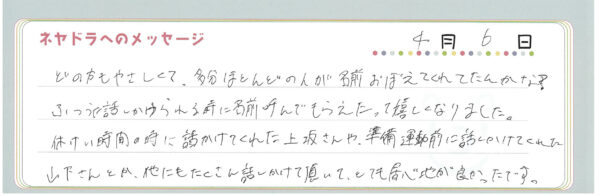 ネヤドラへのメッセージ 4月6日
どの方もやさしくて、多分ほとんどの人が名前おぼえてくれてたんかな?
ふつうに話しかけられる時に名前呼んでもらえたって嬉しくなりました。
休けい時間の時に話かけてくれた上坂さんや、準備運動前に話しかけてくれた
山下さんとか、他にもたくさん話しかけて頂いて、とても居心地が良かったです。